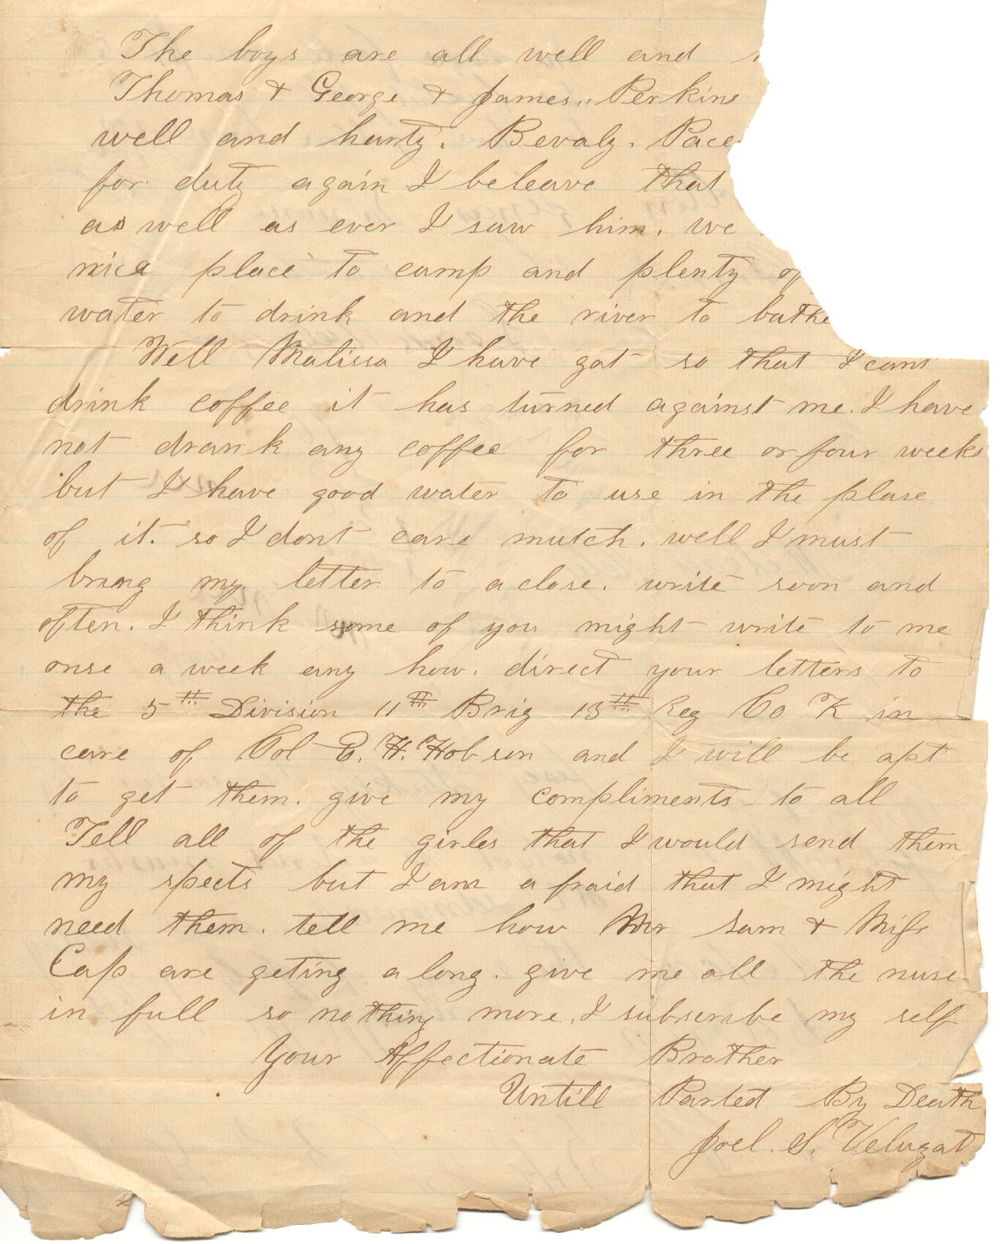 The boys are all well and
Thomas & George & James,, Perkins
well and harty. Bevaly. Pace
for duty again I beleave that
as well as ever I saw him. we
nice place to camp and plenty of
water to drink and the river to bathe
Well Malissa I have got so that I cant
drink coffee it has turned against me. I have
not drank any coffee for three or four weeks
but I have good water to use in the plase
of it. so I dont care mutch. well I must
bring my letter to a close. write soon and
often. I think some of you might write to me
onse a week any how. direct your letters to
the 5th Division 11th Brig 13th Reg Co K in
care of Col E. H. Hobson and I will be apt
to get them. give my compliments to all
Tell all of the girles that I would send them
my spects but I am a fraid that I might
need them. tell me how Mr Sam & Miss
Cap are geting along. give me all the nuse
in full so nothing more, I subscribe my self
Your Affectionate Brother
Untill Parted By Death
Joel. S. Velugat